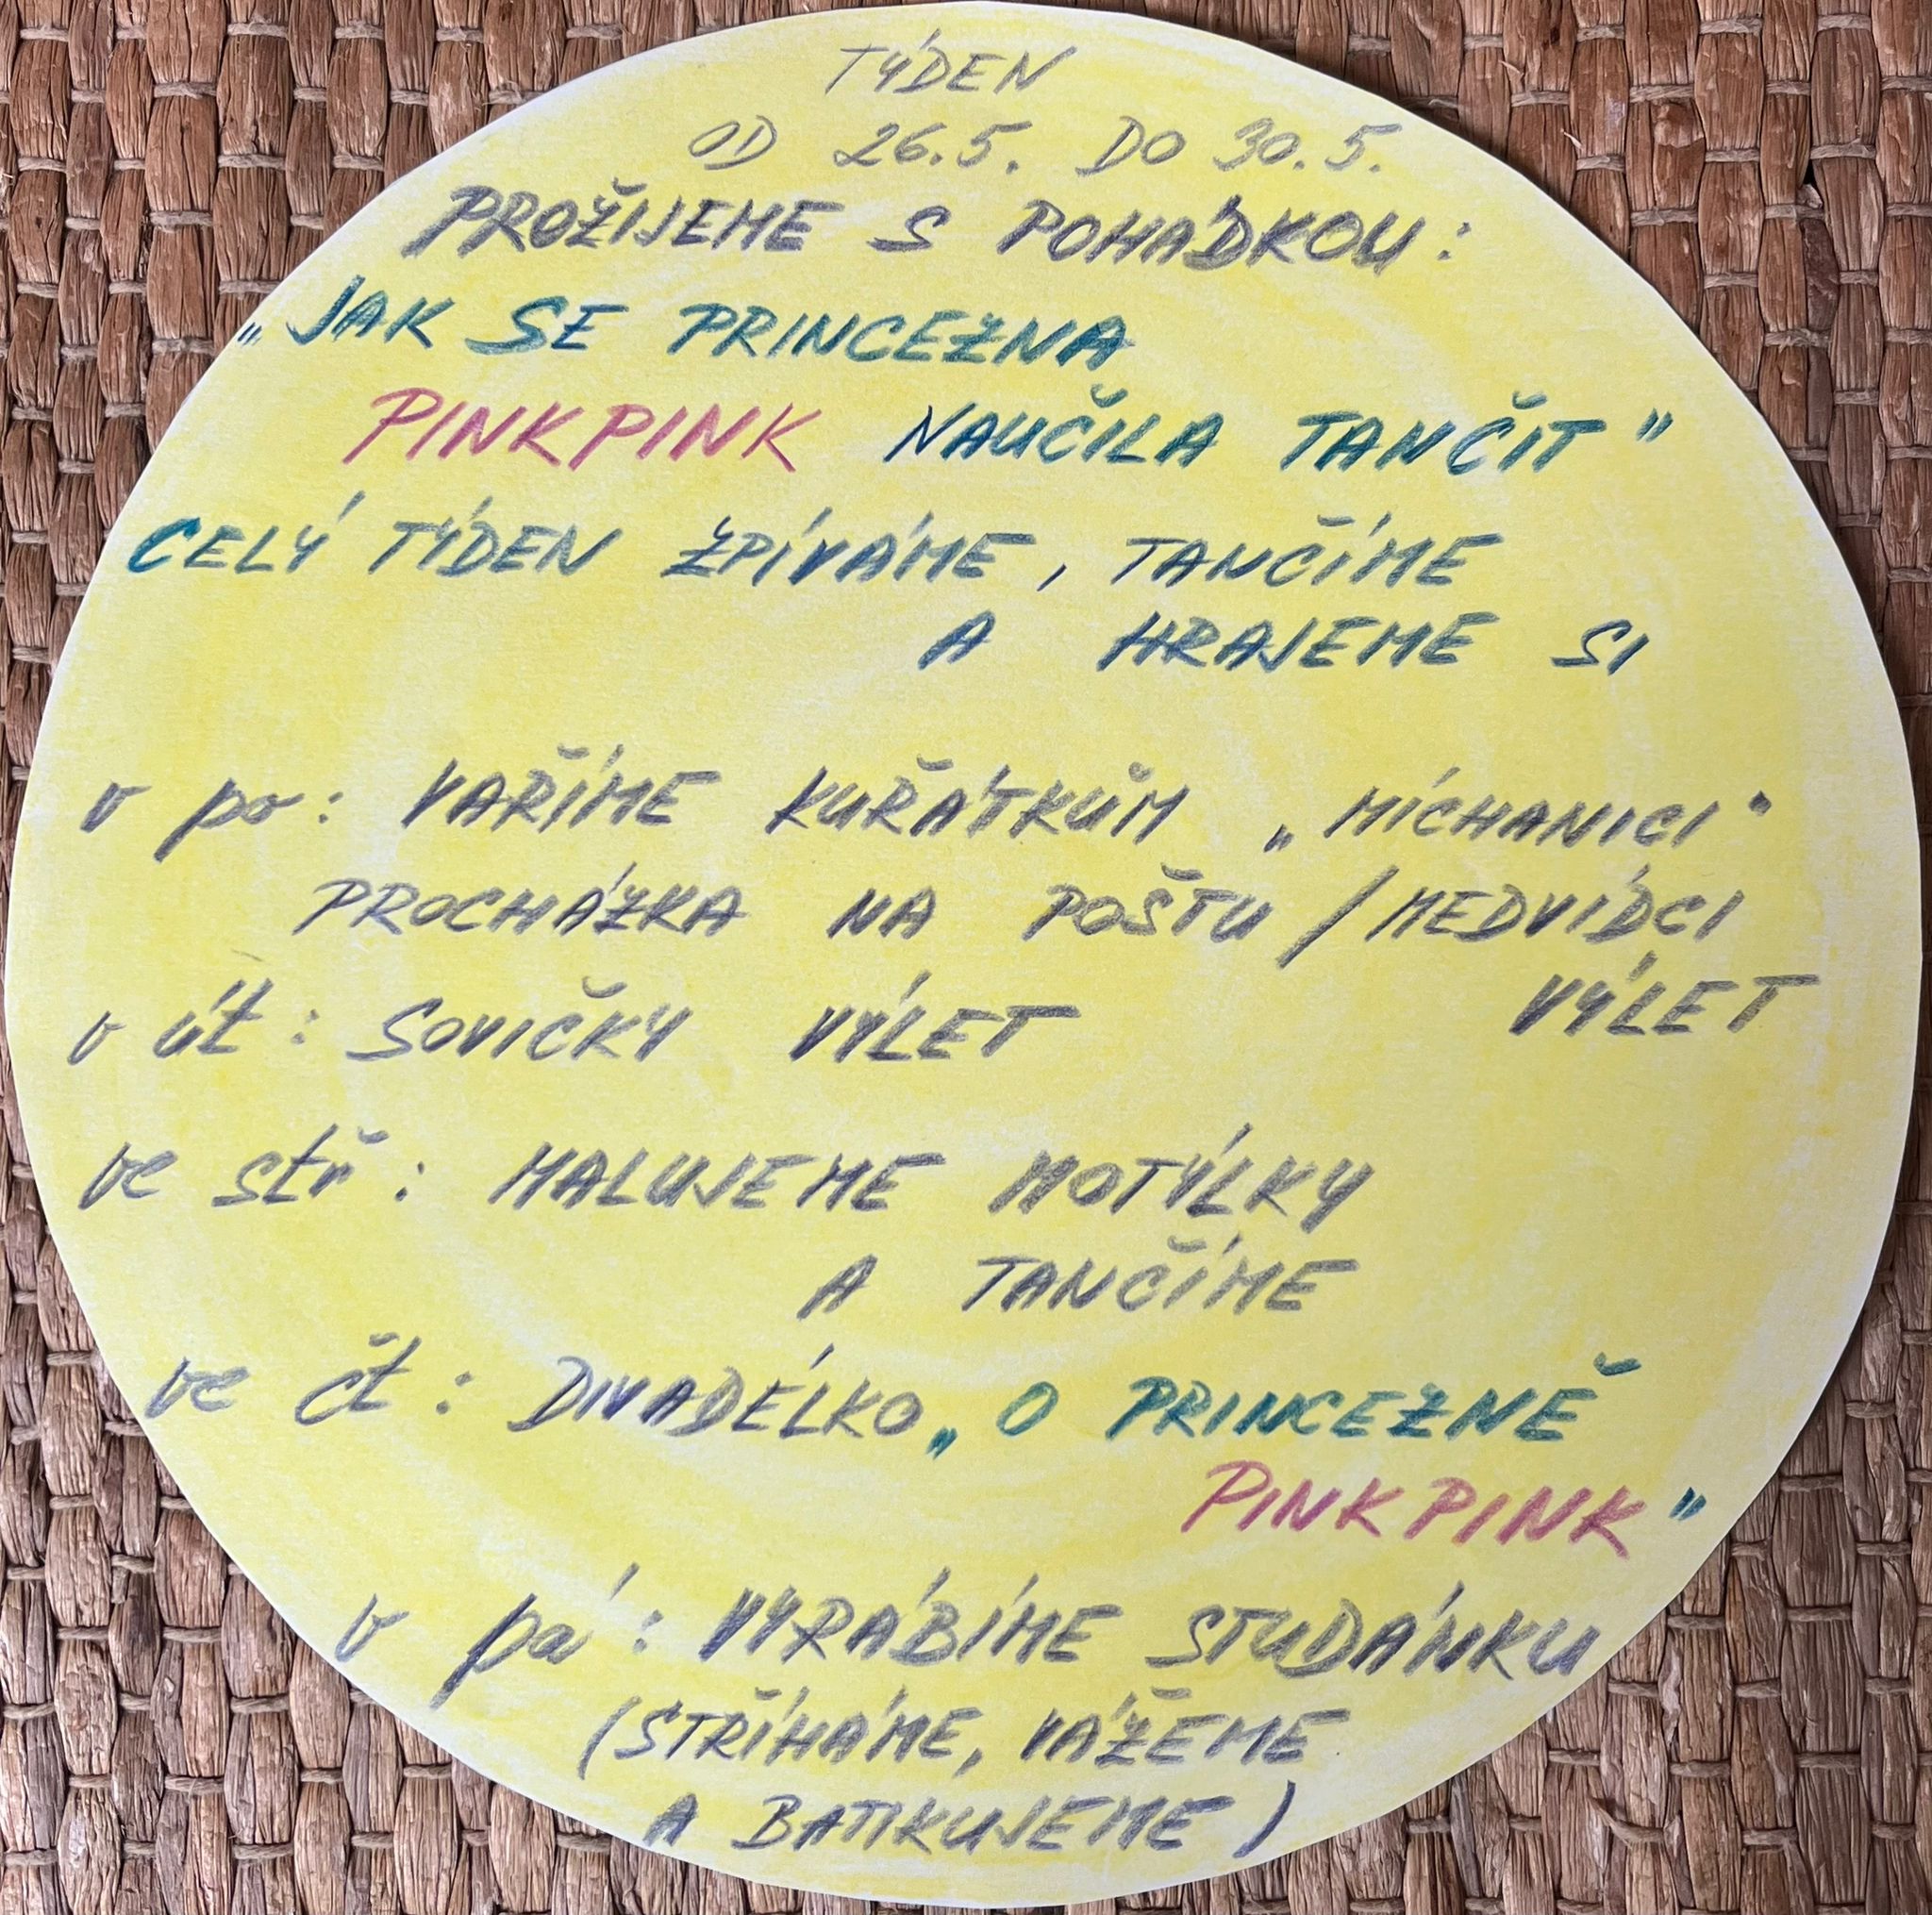 TÝDEN
OD 26.5. DO 30.5.
PROŽIJEME S POHÁDKOU:
„JAK SE PRINCEZNA
PINKPINK NAUČILA TANČIT"
CELÝ TÝDEN ZPÍVÁME, TANČÍME
A HRAJEME SI
v po: VAŘÍME KUŘÁTKŮM „MÍCHANICI"
PROCHÁZKA NA POŠTU / MEDVÍDCI
VÝLET
v út: SOVIČKY VÝLET
ve stř: MALUJEME MOTÝLKY
A TANČÍME
ve čt: DIVADÉLKO „O PRINCEZNĚ
PINKPINK"
v pá: VYRÁBÍME STUDÁNKU
(STŘÍHÁME, VÁŽEME
A BATIKUJEME)